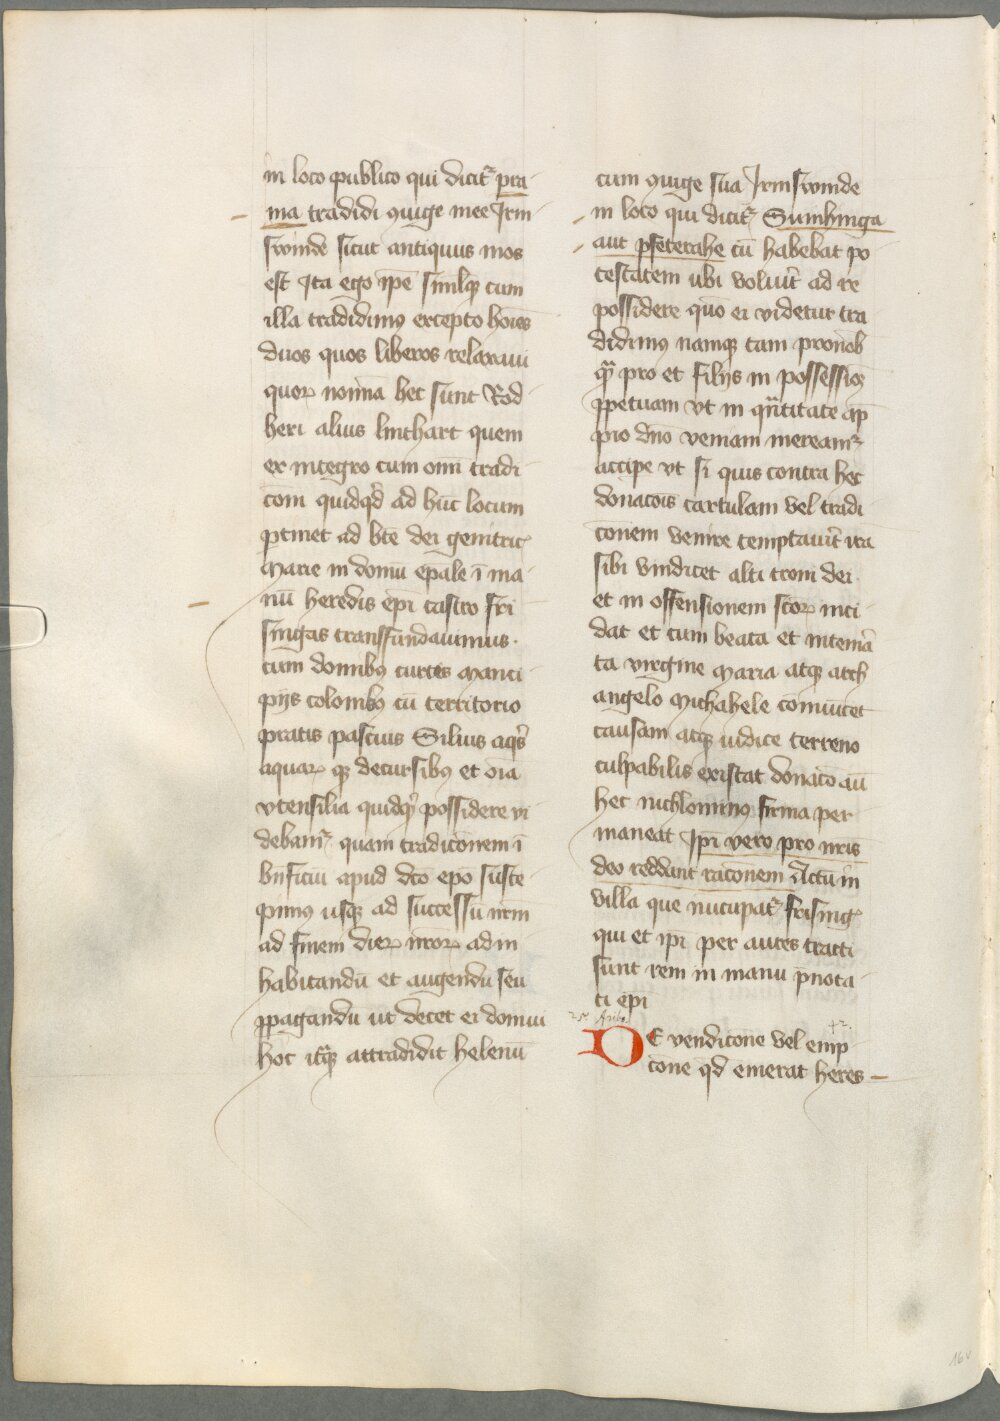 in loco publico qui dicitr pra
ma tradidi ɔiuge mee Irm
swinde sicut antiquus mos
est Ita ego ip̄e simulq̄ cum
illa tradidimꝰ excepto hōies
duos quos liberos relaxaui
quoꝝ nomīa hec sunt Rod
heri alius linthart quem
ex integro cum om̄i tradi
cōm quidqͥd ad hūc locum
ꝑtinet ad bt̄e dei genitric
Marie in domū ep̄ale ī ma
nū heredis ep̄i castro fri
singas transfundauimus
cum domibꝰ curtis manci
pijs colonibꝰ cū territorio
pratis pascuis Siluis aqͥs
aquaꝝ qꝫ decursibꝰ et oīa
vtensilia quidqͥd possidere vi
debamr quam tradicōnem ī
bn̄ficiū apud dc̄o ep̄o susce
pimꝰ usqꝫ ad successū nr̄m
ad finem dieꝝ nr̄oꝝ ad in
habitandū et augendū seu
ꝓpagandū ut decet ei domui
hoc itaqꝫ attradidit helenū
cum ɔiuge sua Irmswinde
in loco qui dicitr Sunhinga
aut pseterahe cū habebat po
testatem ubi voluit ad re
possidere quō ei videtur tra
didimꝰ namqꝫ tam pro nob̄
qͣꝫ pro et filijs in possessioꝫ
ꝑpetuam vt in qn̄titate ap
pio dn̄o veniam mereamr
accipe vt si quis contra hec
donacōis cartulam vel tradi
cōnem venire temptauit ira
sibi vindicet alti troni dei
et in offensionem sc̄oꝝ inci
dat et cum beata et intemā
ta virgine Maria atqꝫ arch
angelo Michahele cōmūicet
causam atqꝫ iudice terreno
culpabilis existat donacō aū
hec nichlominꝰ firma per
maneat Ip̄i vero pro nr̄is
deo reddunt racōnem Actū in
villa que nūcupatr frising
qui et ip̄i per aures tracti
sunt rem in manu p̄nota
ti ep̄i
42.
De vendicōne vel emp
cōne qd̄ emerat heres
16v